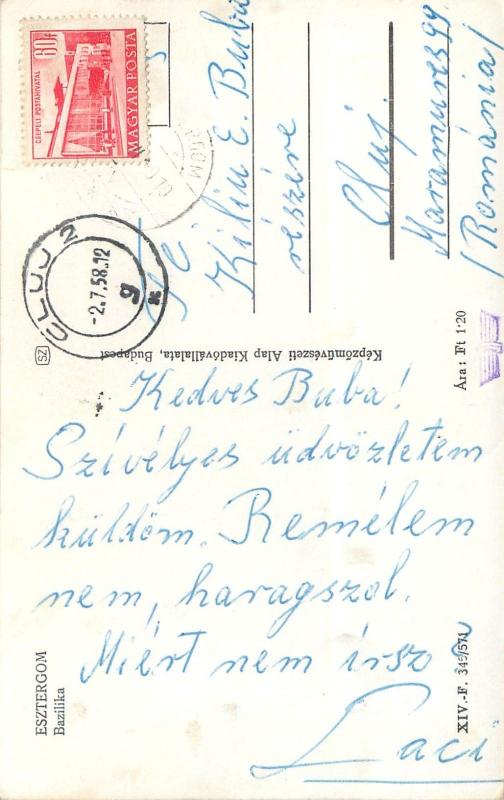 60f
CSEPELI POSTAHIVATAL
MAGYAR POSTA
CLUJ 2
-2.7.58.12
g
Kiliu E. Buba
részére
Cluj
Maramures 99
/România/
Képzőművészeti Alap Kiadóvállalata, Budapest
SZ
Ára: Ft 1·20
Kedves Buba!
Szívélyes üdvözletem
küldöm. Remélem
nem, haragszol.
Miért nem írsz
Laci
ESZTERGOM
Bazilika